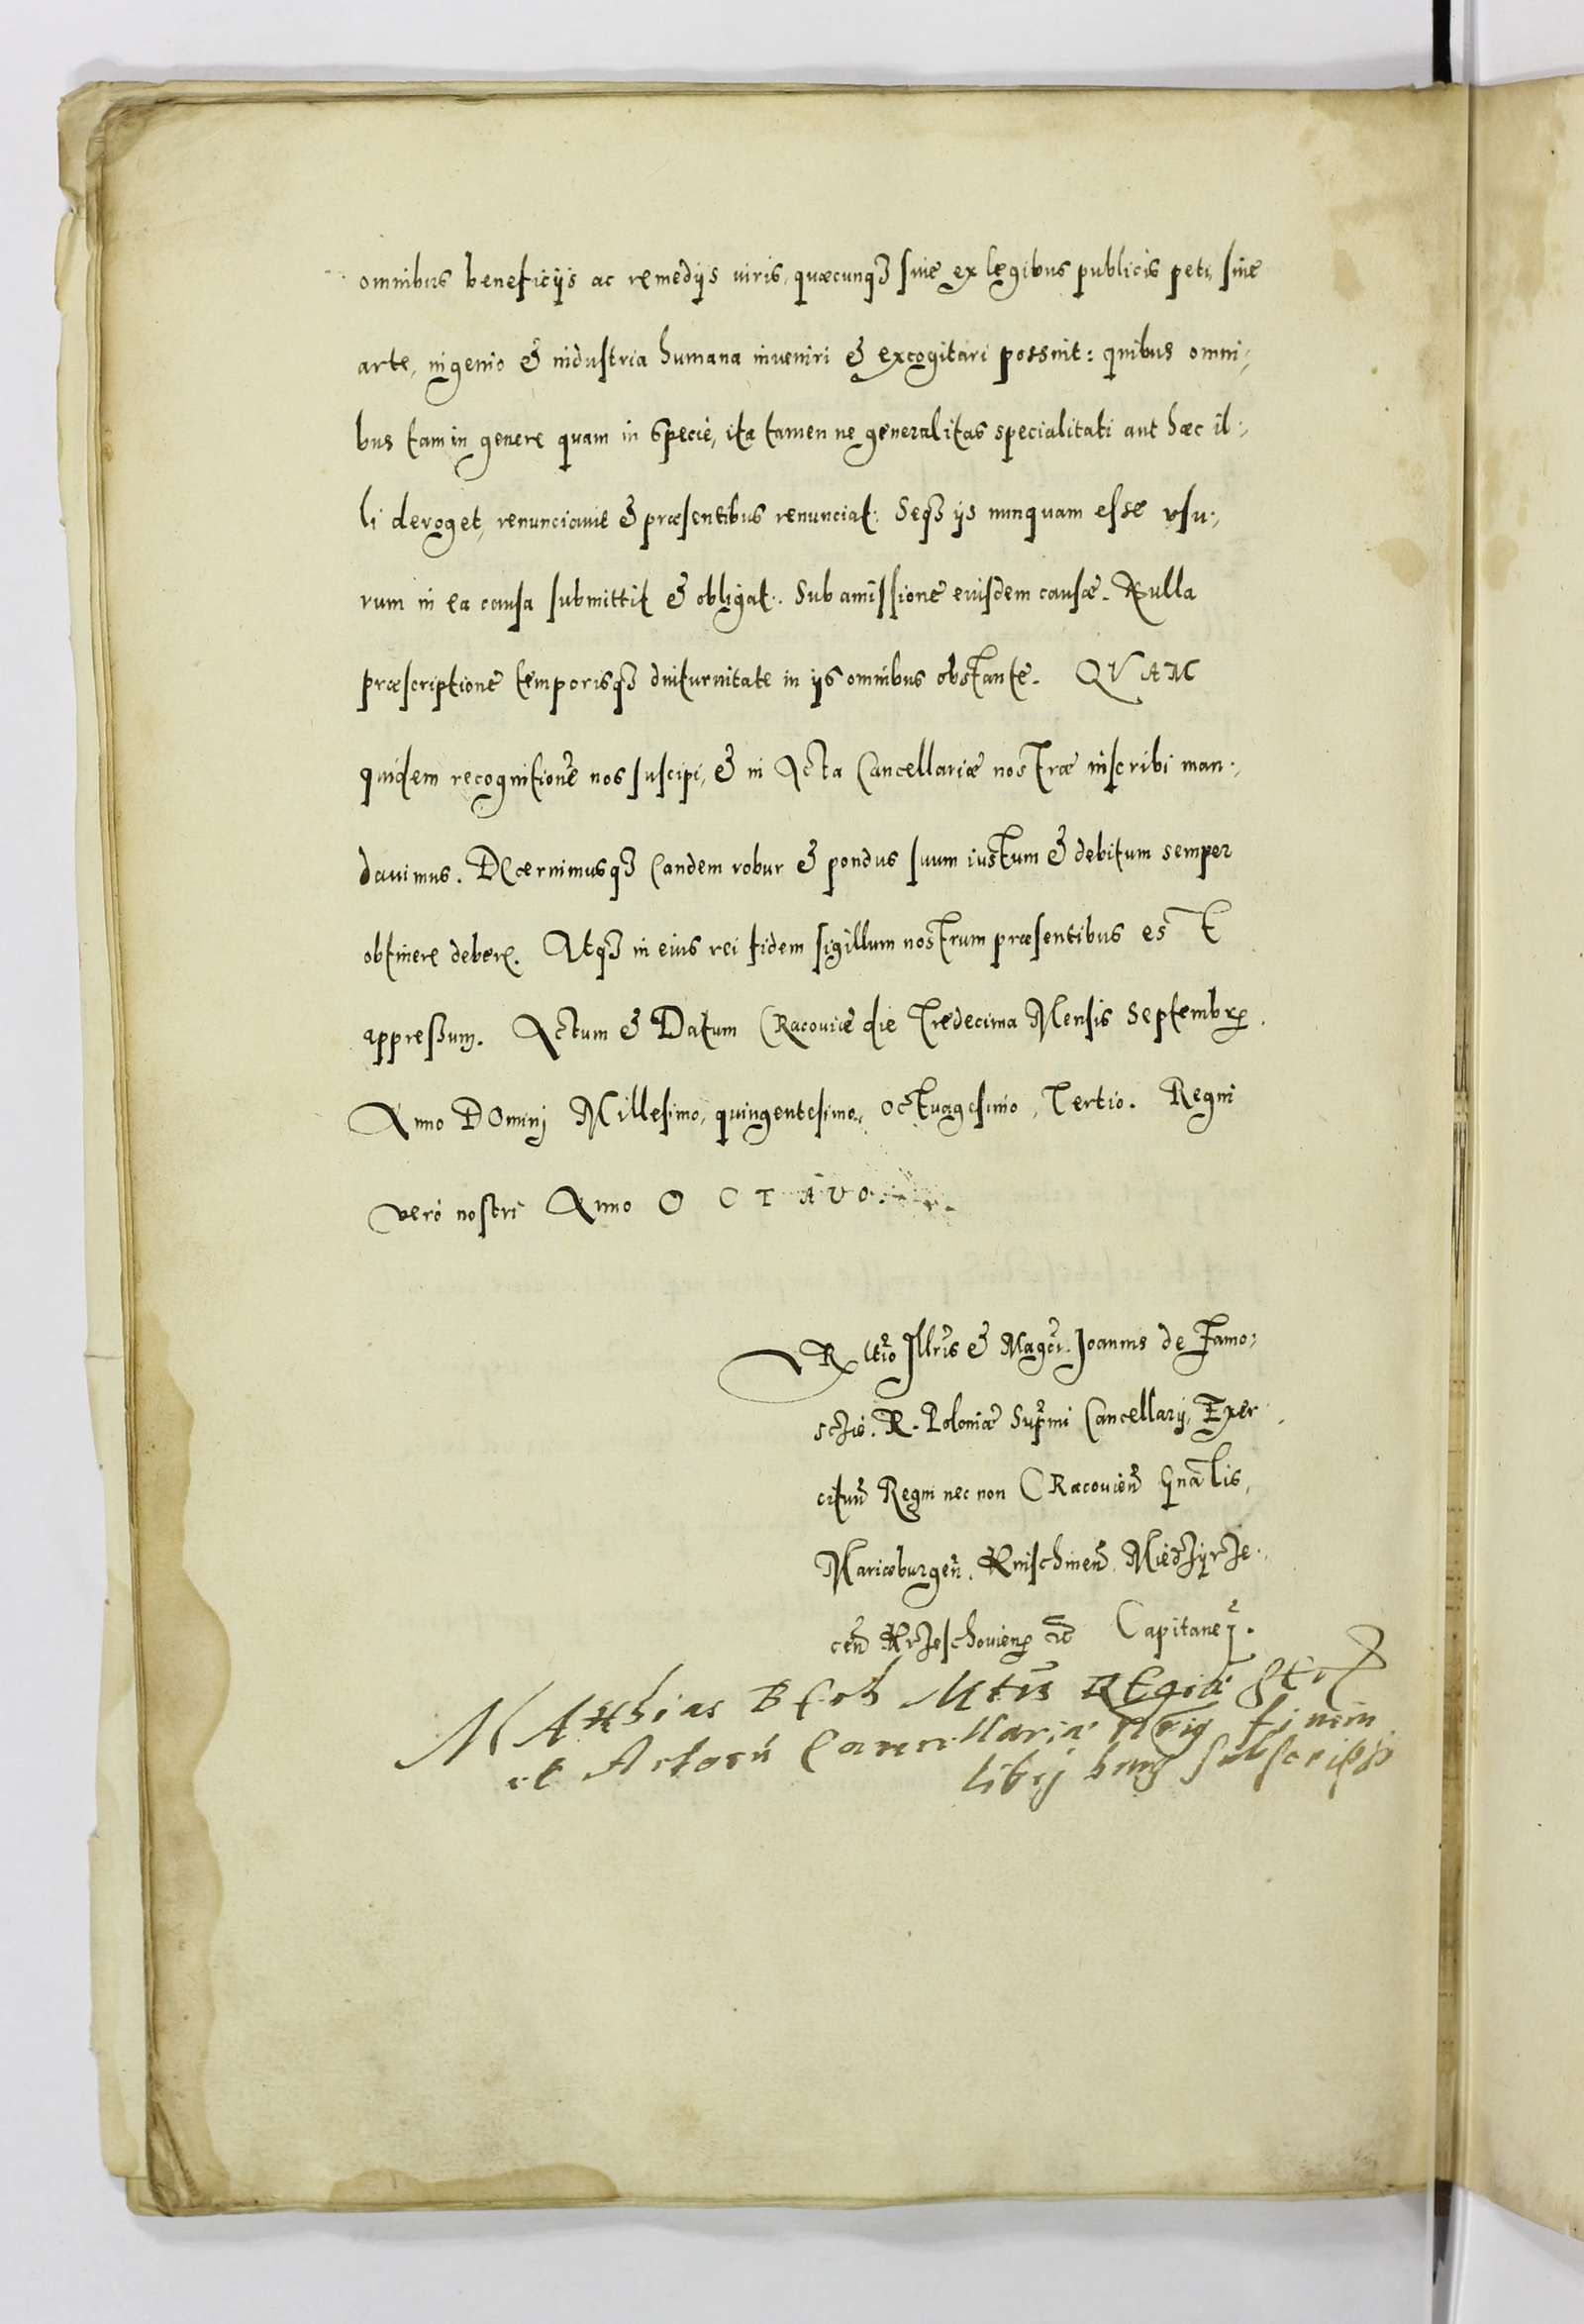 omnibus beneficijs ac remedijs iuris, quæcunq3 siue ex legibus publicis peti, siue
arte, ingenio & industria humana inueniri & excogitari possint: quibus omni-,
bus tam in genere quam in specie, ita tamen ne generalitas specialitati aut hæc il-,
li deroget, renunciauit & præsentibus renunciat: Seq3 ijs nunquam esse vsu-,
rum in ea causa submittit & obligat. Sub amissione eiusdem causæ. Nulla
præscriptione temporisq3 diuturnitate in ijs omnibus obstante. QVAM
quidem recognitione nos suscipi, & in Acta Cancellariæ nostræ inscribi man-,
dauimus. DEcernimusq3 eandem robur & pondus suum iustum & debitum semper
obtinere debere. Atq3 in eius rei fidem sigillum nostrum præsentibus est
appressum. Actum & Datum CRacouiæ die Tredecima Mensis Septembr.
Anno DOminj Millesimo, quingentesimo, octuagesimo, Tertio. Regni
vero nostri Anno O C T A V O.
Rltio Illris & Magci. Joannis de Zamo:
sczie. R. Poloniæ Supmi Cancellarij, Exer
cituu Regni nec non CRacouien Gnalis,
Mariæburgen. Knischinen. Miedzyrze-
cen Krzeschouien etc Capitanej.
MAtthias Mtis REgiæ
et Actoru Cancellariæ finem
librj huius subscripsit